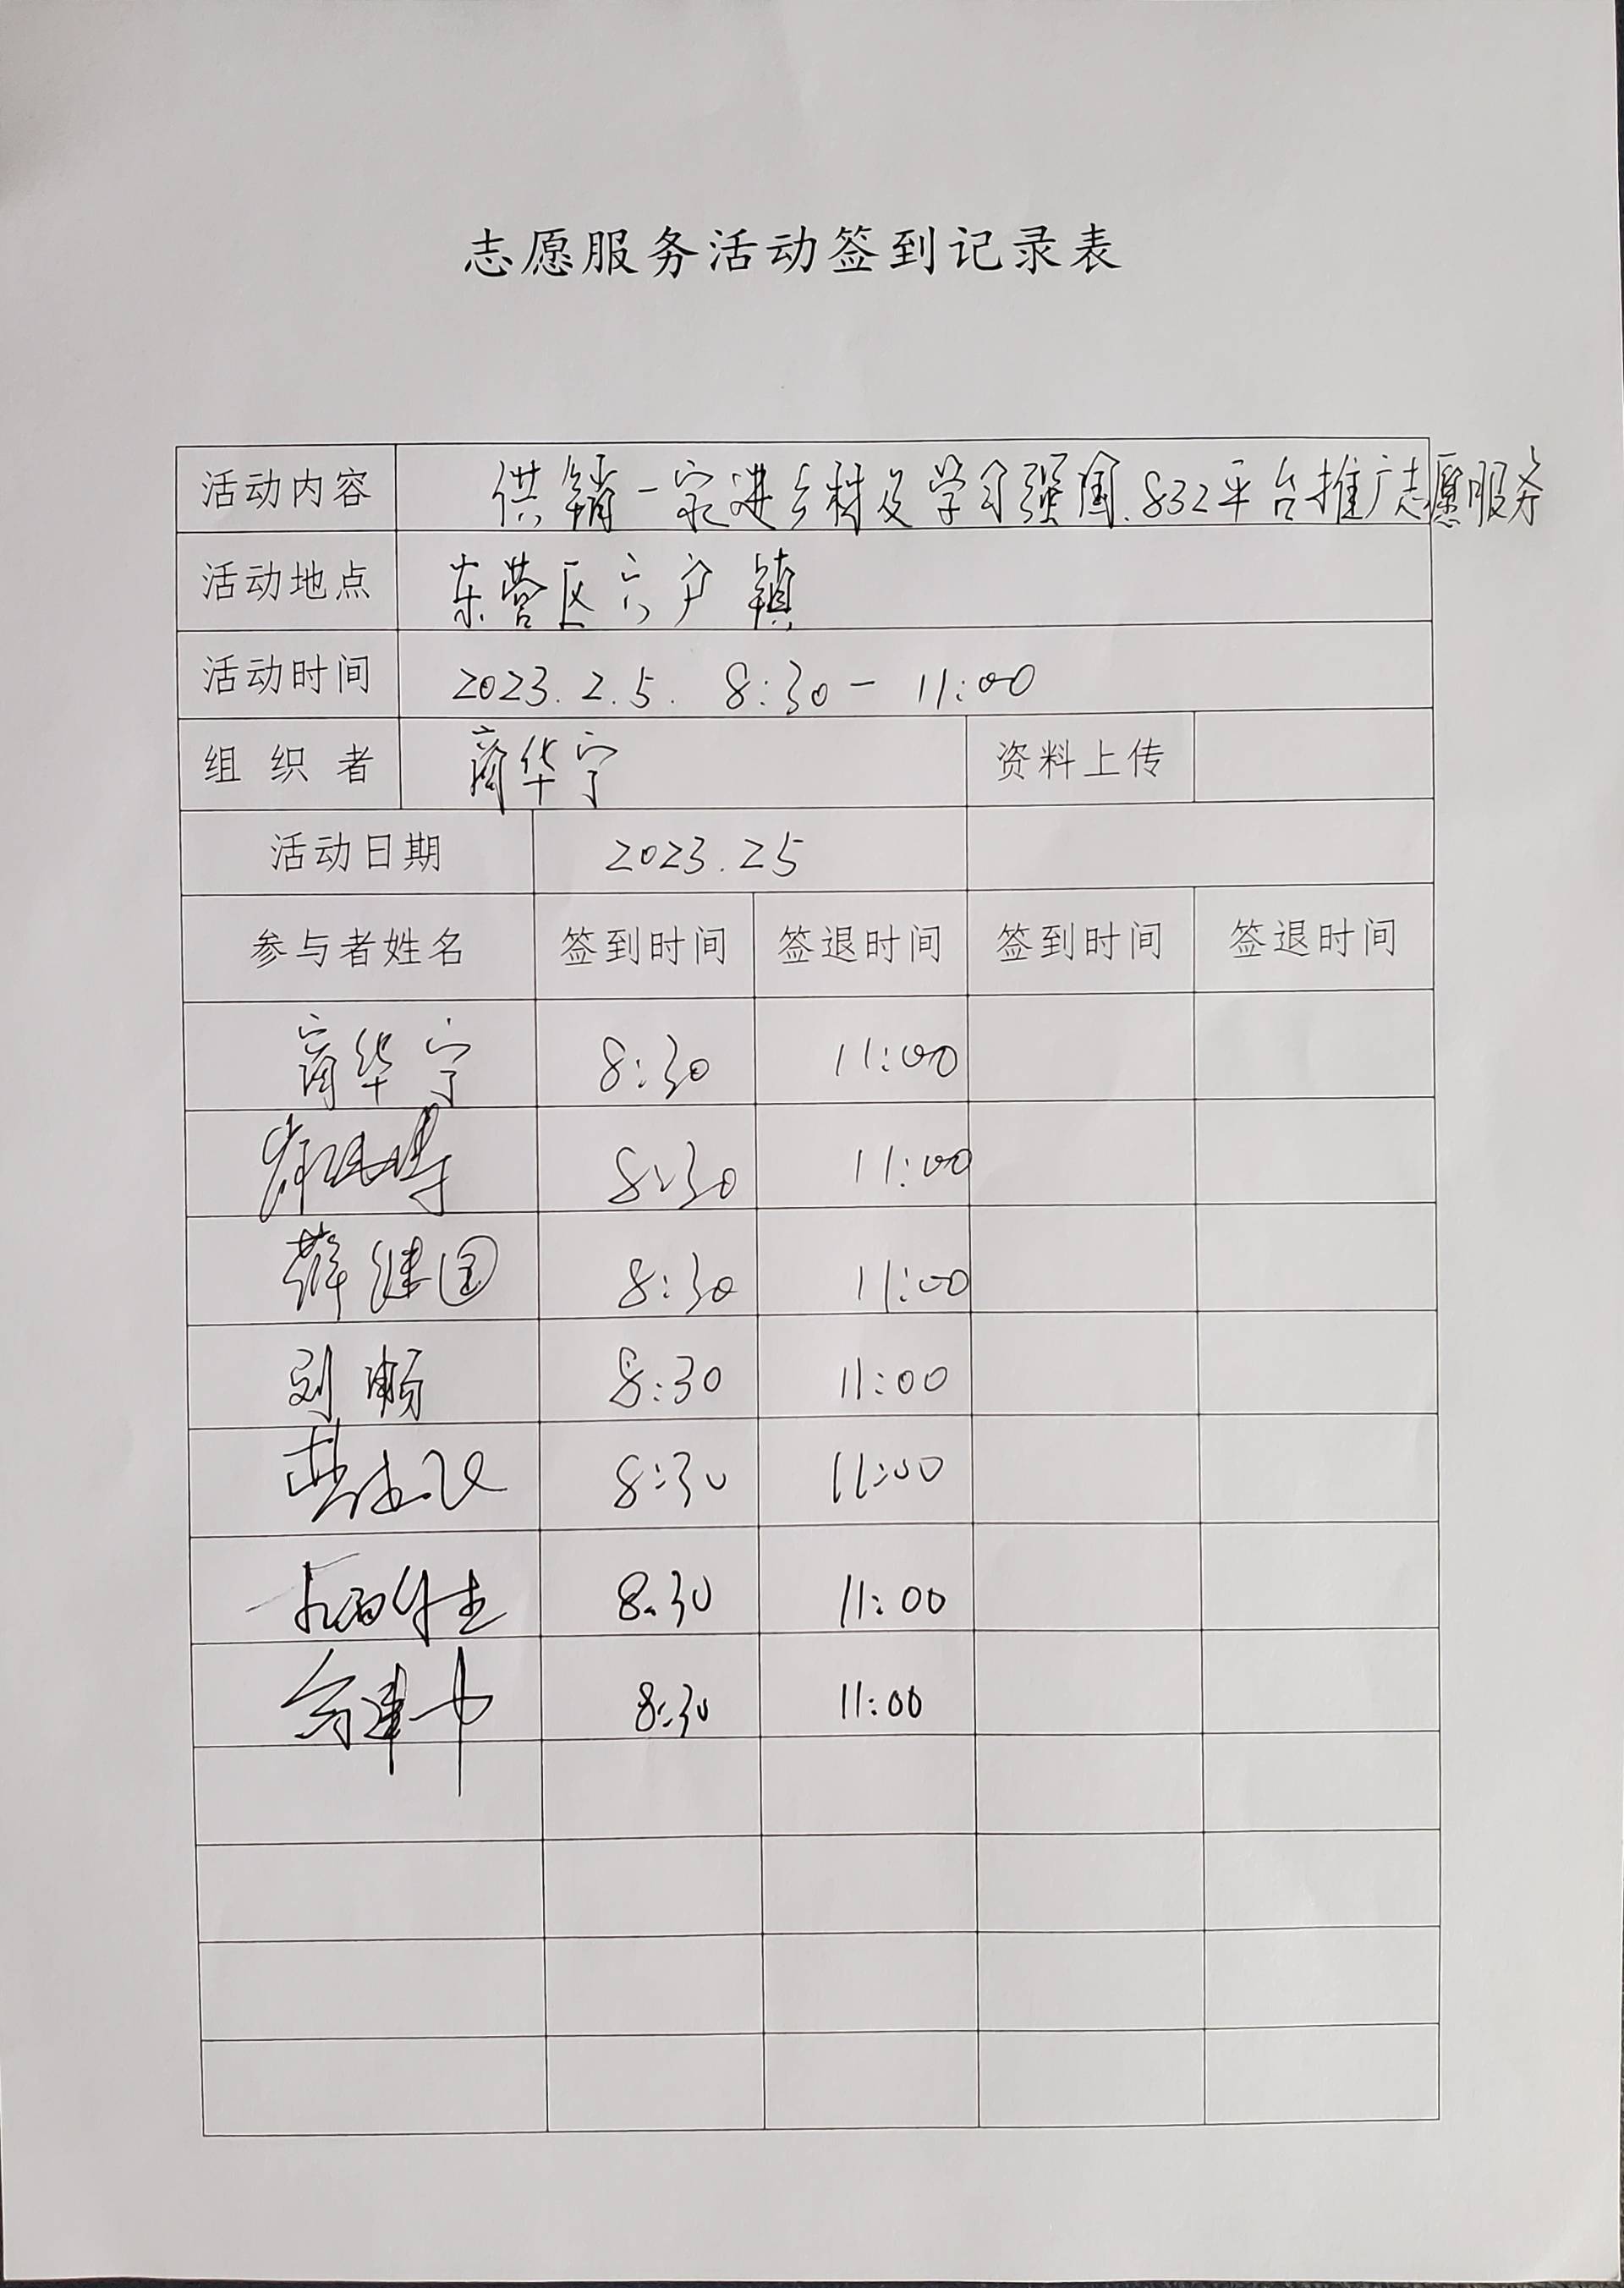 志愿服务活动签到记录表
活动内容 供销一家进乡村及学习强国.832平台推广志愿服务
活动地点 东营区六户镇
活动时间 2023.2.5. 8:30-11:00
组织者 商华宁 资料上传
活动日期 2023.25
参与者姓名 签到时间 签退时间 签到时间 签退时间
商华宁 8:30 11:00
8:30 11:00
薛继国 8:30 11:00
刘顺 8:30 11:00
8:30 11:00
8:30 11:00
8:30 11:00